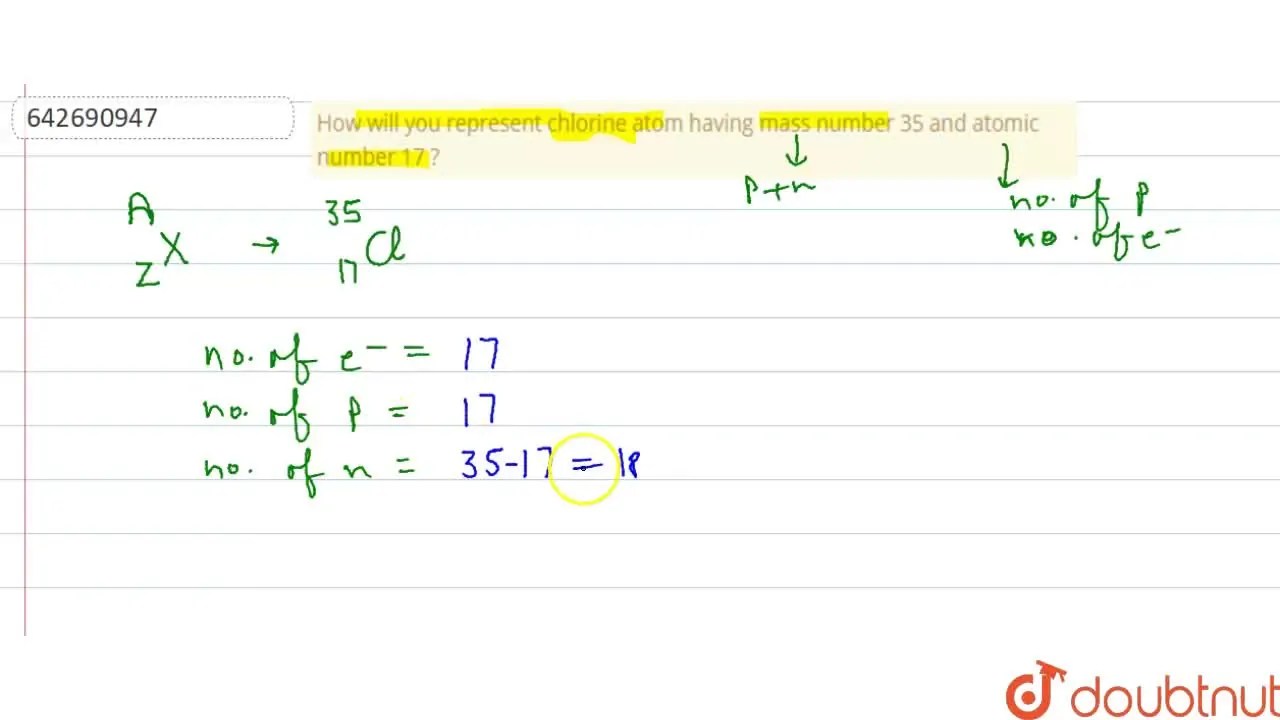 642690947
How will you represent chlorine atom having mass number 35 and atomic
number 17 ?
p+n
no. of p
no. of e-
A
Z X → 35
17 Cl
no. of e- = 17
no. of p = 17
no. of n = 35-17 = 18
doubtnut